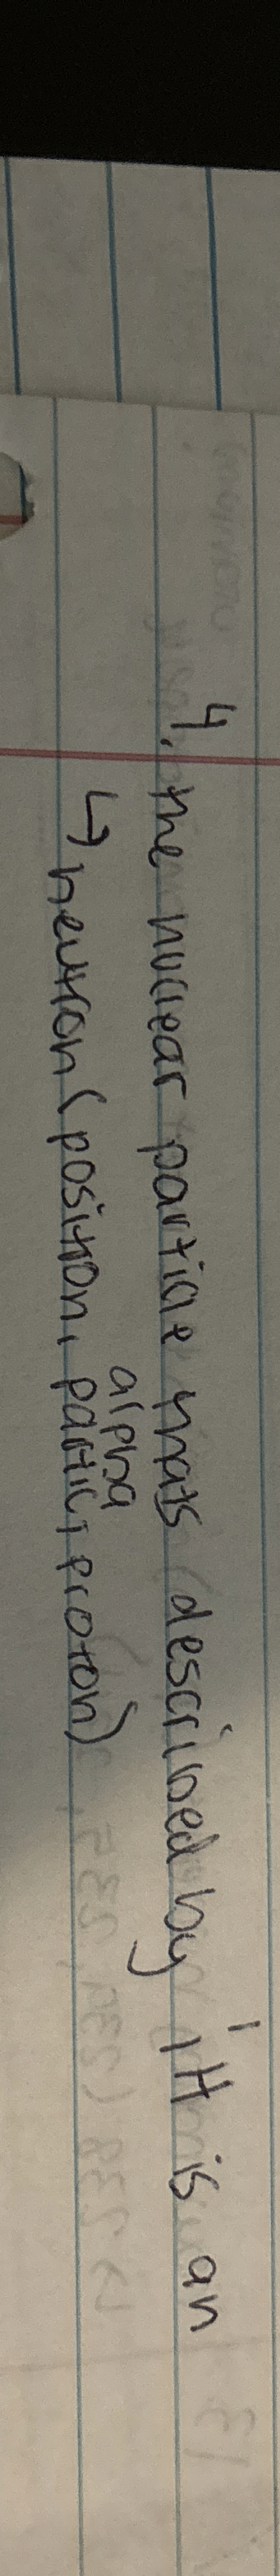 4. the nuclear particle thats described by ¹₁H is an
↳ neutron (positron, alpha partic, proton)